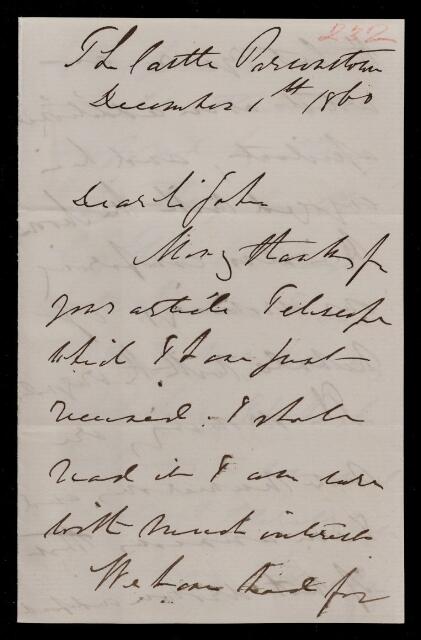 232
The Castle Parsonstown
December 1st 1860
Dear Sir John
Many thanks for
your article Telescope
which I have just
received. I shall
read it I am sure
with much interest
We have had for